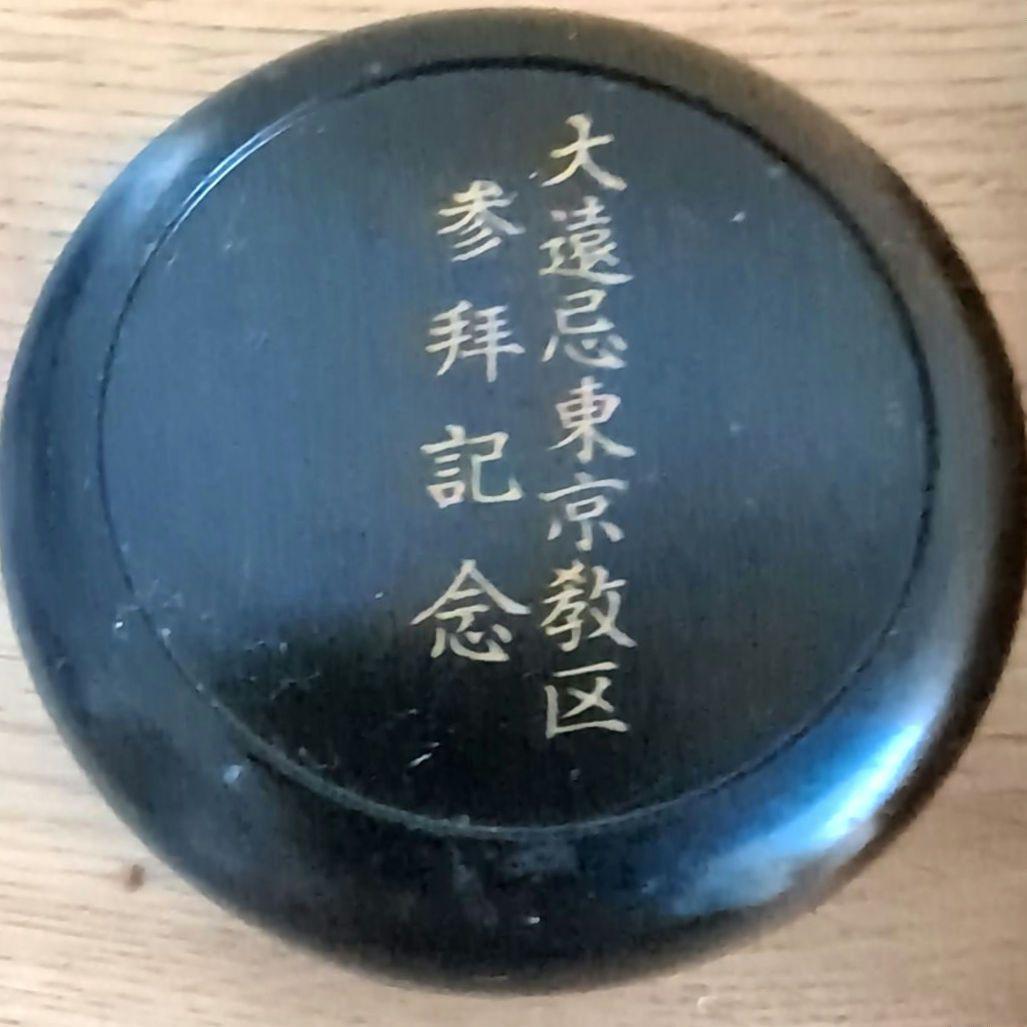 大遠忌東京教区
参拜記念